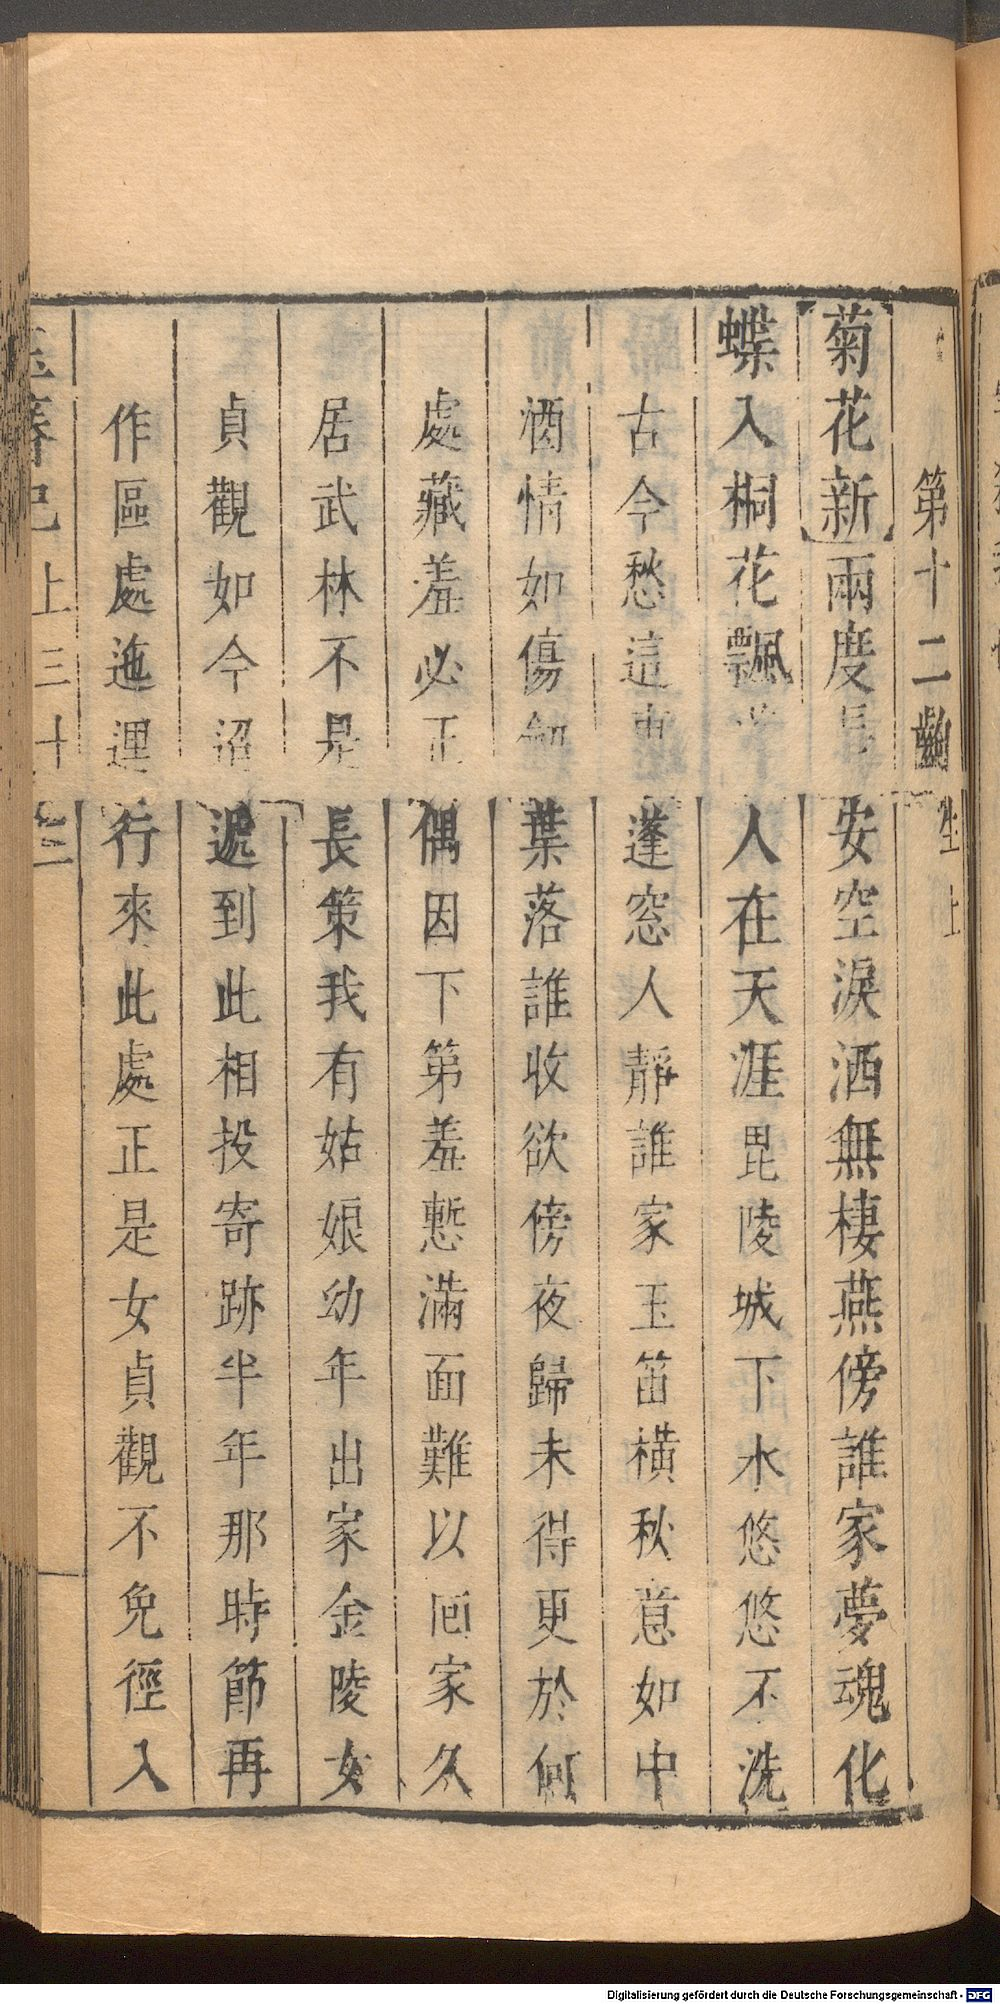 第十二齣 生上
菊花新兩度長安空淚洒無棲燕傍誰家夢魂化
蝶入桐花飄人在天涯毘陵城下水悠悠不洗
古今愁這蓬窓人靜誰家玉笛橫秋意如中
酒情如傷葉落誰收欲傍夜歸未得更於何
處藏羞必正偶因下第羞慙滿面難以囬家久
居武林不是長策我有姑娘幼年出家金陵女
貞觀如今迢遞到此相投寄跡半年那時節再
作區處迤逕行來此處正是女貞觀不免徑入
玉簪記上三十三
Digitalisierung gefördert durch die Deutsche Forschungsgemeinschaft - DFG